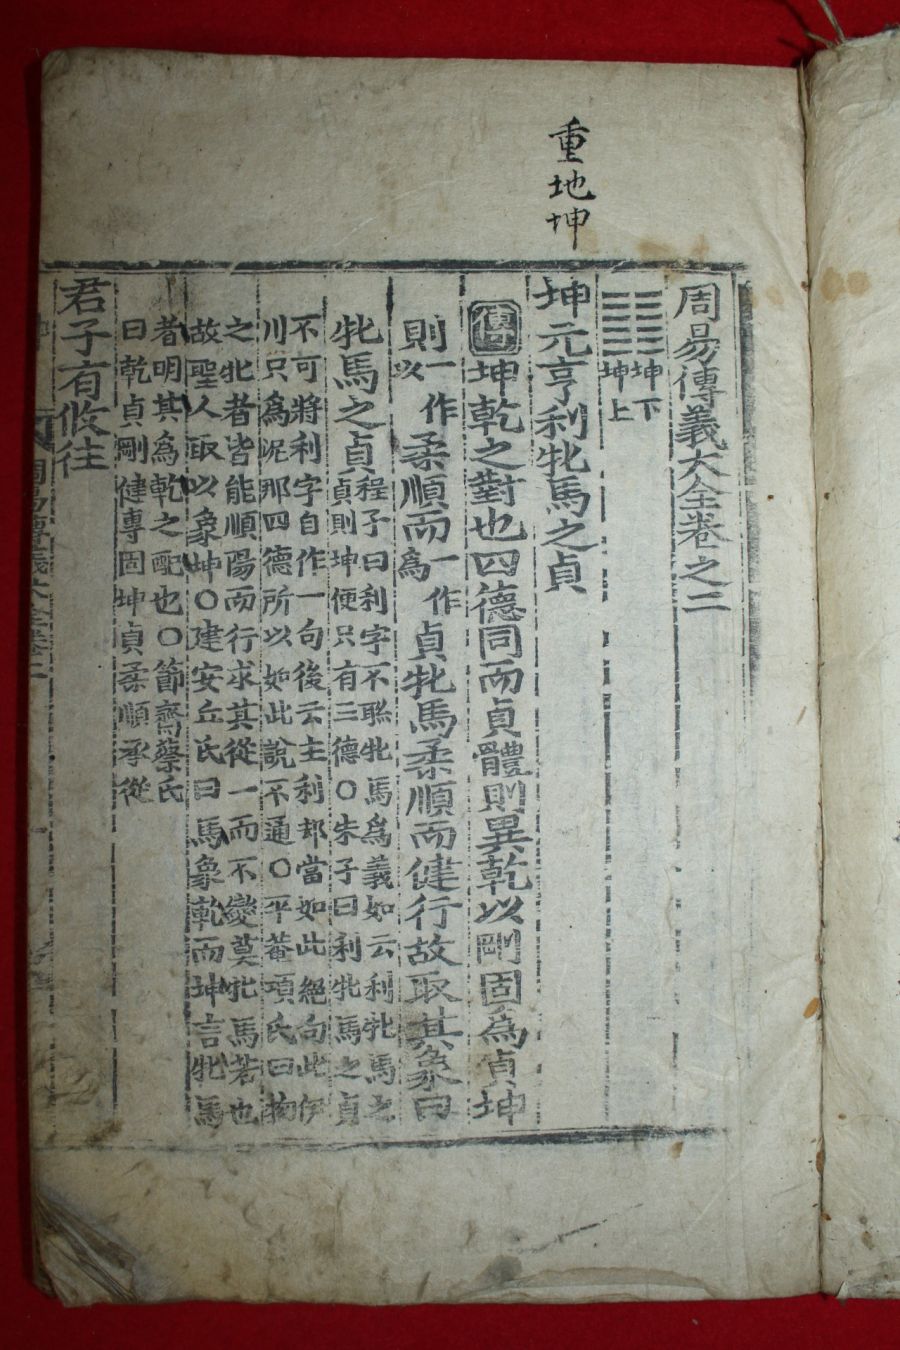 重地坤
周易傳義大全卷之二
坤下
坤上
坤元亨利牝馬之貞
傳坤乾之對也四德同而貞體則異乾以剛固爲貞坤
則一作
以柔順而一作
爲貞牝馬柔順而健行故取其象曰
牝馬之貞程子曰利字不聯牝馬爲義如云利牝馬之
貞則坤便只有三德○朱子曰利牝馬之貞
不可將利字自作一句後云主利却當如此絕句此伊
川只爲泥那四德所以如此說不通○平菴項氏曰物
之牝者皆能順陽而行求其從一而不變莫牝馬若也
故聖人取以象坤○建安丘氏曰馬象乾而坤言牝馬
者明其爲乾之配也○節齋蔡氏
曰乾貞剛健專固坤貞柔順承從
君子有攸往
周易傳義大全卷二